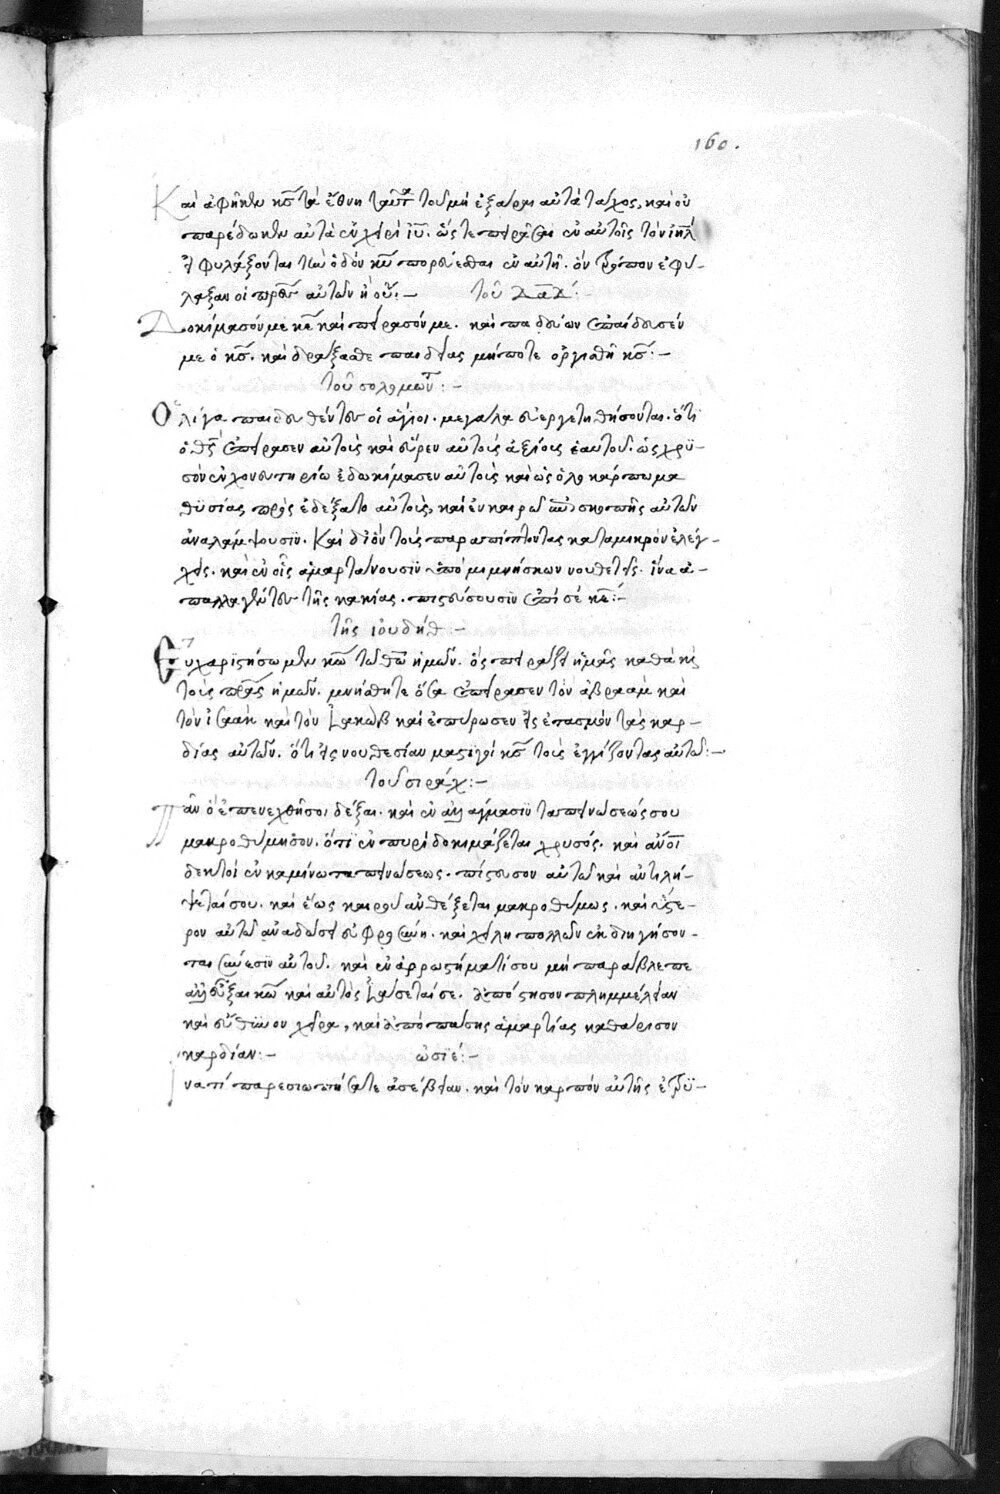 160.
Καὶ ἀφῆκεν κ̅ς̅ τὰ ἔθνη ταῦτα τοῦ μὴ ἐξᾶραι αὐτὰ τάχος, καὶ οὐ
παρέδωκεν αὐτὰ ἐν χειρὶ ι̅υ̅. ὥστε πειρᾶσαι ἐν αὐτοῖς τὸν ι̅η̅λ̅
εἰ φυλάξονται τὴν ὁδὸν κ̅υ̅ πορεύεσθαι ἐν αὐτῇ. ὃν τρόπον ἐφύ-
λαξαν οἱ π̅ρ̅ε̅ς̅ αὐτῶν ἢ οὔ:- τοῦ δ̅α̅δ̅:-
Δοκίμασόν με κ̅ε̅ καὶ πείρασόν με. καὶ παιδεύων ἐπαίδευσέν
με ὁ κ̅ς̅. καὶ δράξασθε παιδείας μήποτε ὀργισθῇ κ̅ς̅:-
τοῦ σολομῶντ:-
Ὀλίγα παιδευθέντες οἱ ἅγιοι. μεγάλα εὐεργετηθήσονται. ὅτι
ὁ θ̅ς̅ ἐπείρασεν αὐτοὺς καὶ εὗρεν αὐτοὺς ἀξίους ἑαυτοῦ. ὡς χρυ-
σὸν ἐν χονευτηρίω ἐδοκίμασεν αὐτοὺς καὶ ὡς ὁλοκάρπωμα
θυσίας προσεδέξατο αὐτούς, καὶ ἐν καιρῶ ἐπισκοπῆς αὐτῶν
ἀναλάμψουσιν. Καὶ διὸ τοὺς παραπίπτοντας καταμικρὸν ἐλέγ-
χεις. καὶ ἐν οἷς ἁμαρτάνουσιν ὑπομιμνήσκων νουθετεῖς. ἵνα ἀ-
παλλαγέντες τῆς κακίας. πιστεύσουσιν ἐπὶ σὲ κ̅ε̅:-
τῆς ἰουδήθ:-
Εὐχαριστήσωμεν κ̅ω̅ τῶ θ̅ω̅ ἡμῶν. ὃς πειράζει ἡμᾶς καθὰ καὶ
τοὺς π̅ρ̅α̅ς̅ ἡμῶν. μνήσθητε ὅσα ἐπείρασεν τὸν ἀβραὰμ καὶ
τὸν ἰσαὰκ καὶ τὸν ἰακὼβ καὶ ἐπύρωσεν εἰς ἐτασμὸν τὰς καρ-
δίας αὐτῶν. ὅτι εἰς νουθεσίαν μαστιγοῖ κ̅ς̅ τοὺς ἐγγίζοντας αὐτῶ:-
τοῦ σιράχ:-
Πᾶν ὃ ἐπενεχθῆ σοι δέξαι. καὶ ἐν ἀλλάγμασιν ταπεινώσεώς σου
μακροθύμησον. ὅτι ἐν πυρὶ δοκιμάζεται χρυσός. καὶ ἄν̅ο̅ι̅
δεκτοὶ ἐν καμίνω ταπεινώσεως. πίστευσον αὐτῶ καὶ ἀντιλή-
ψεταί σου. καὶ ἕως καιροῦ ἀνθέξεται μακρόθυμος. καὶ ὕστε-
ρον αὐτῶ ἀναδώσει εὐφροσύνη. καὶ χείλη πολλῶν ἐκδιηγήσον-
ται σύνεσιν αὐτοῦ. καὶ ἐν ἀρρωστήματί σου μὴ παράβλεπε
ἀλλ' εὖξαι κ̅ω̅ καὶ αὐτὸς ἰάσεταί σε. ἀπόστησον πλημμέλειαν
καὶ εὔθυνον χεῖρα, καὶ ἀπὸ πάσης ἁμαρτίας καθάρισον
καρδίαν:- ὡσιέ:-
Ἱνατί παρεσιωπήσατε ἀσέβειαν. καὶ τὸν καρπὸν αὐτῆς ἐτρυ-